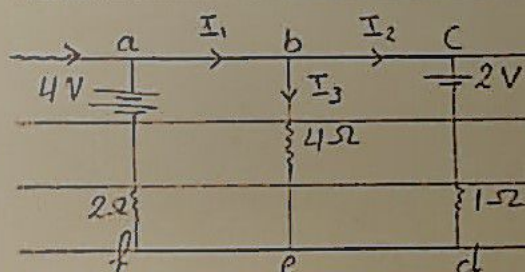 a I₁ b I₂ C
4V I₃ 2V
4Ω
2Ω 1Ω
f e d